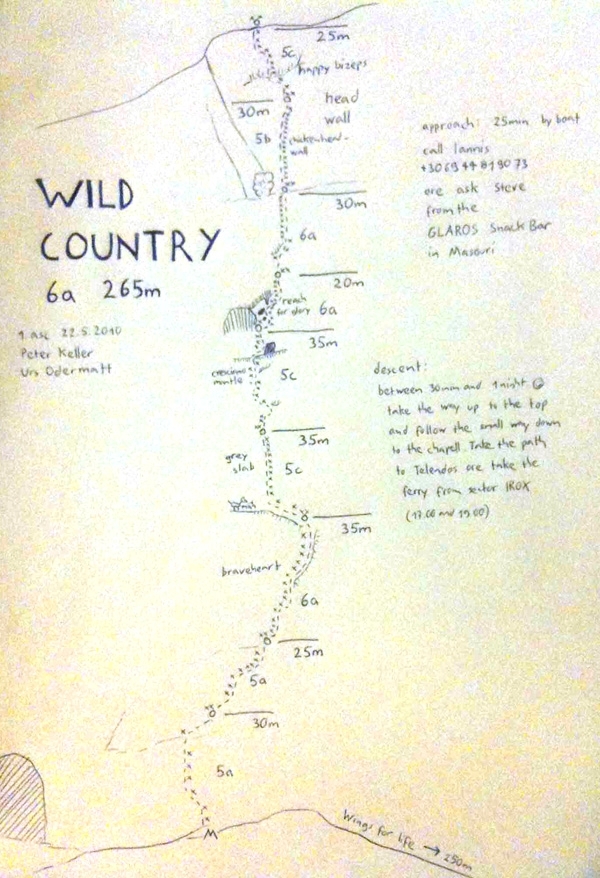 25m
5c
happy bizeps
30m
head
wall
5b
chickenhead-
wall
approach: 25min by boat
call Iannis
+30 69 44 81 90 73
ore ask Steve
from the
GLAROS Snack Bar
in Masouri
30m
WILD
COUNTRY
6a 265m
6a
20m
reach
for glory
6a
1. asc. 22.5.2010
Peter Keller
Urs Odermatt
35m
mantle
5c
descent:
between 30min and 1 night
take the way up to the top
and follow the small way down
to the chapell. Take the path
to Telendos ore take the
ferry from sector IROX
(17.00 and 19.00)
35m
grey
slab
5c
35m
braveheart
6a
25m
5a
30m
5a
Wings for life → 250m